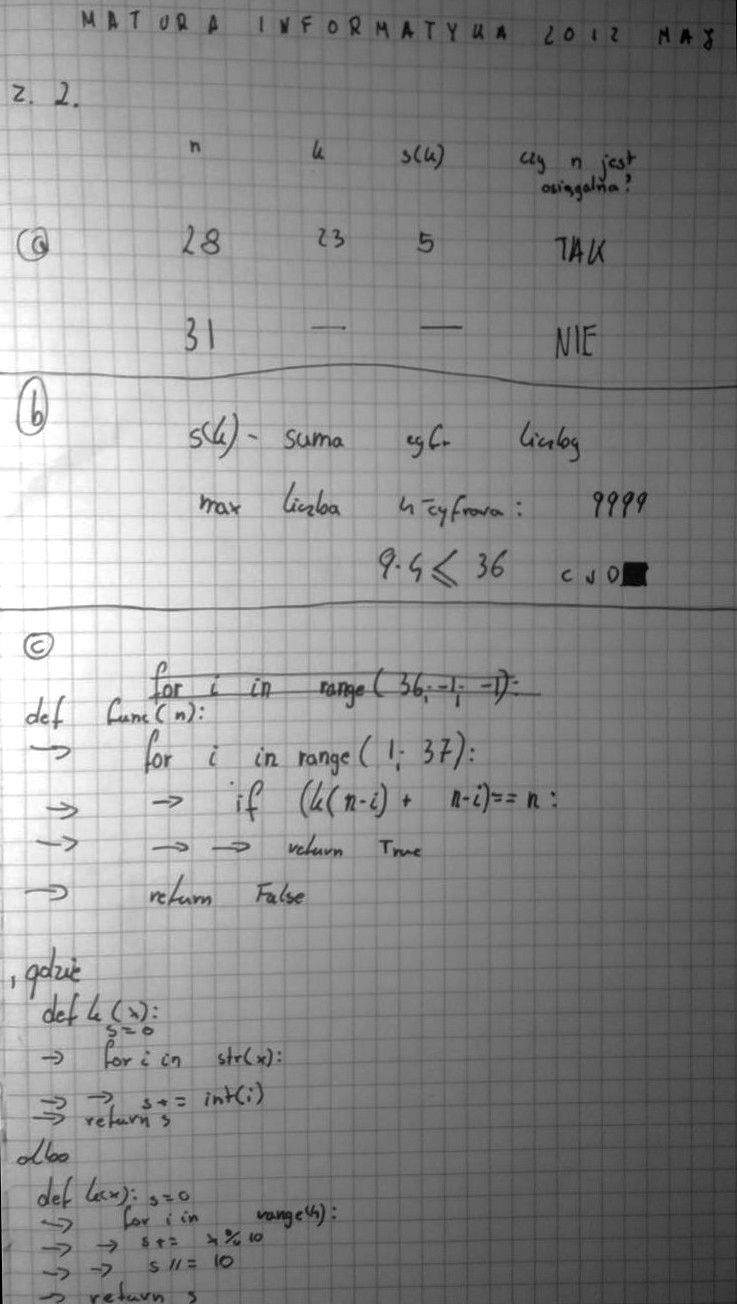 MATURA INFORMATYKA 2012 MAJ
z. 2.
n k s(k) czy n jest
osiągalna?
(a) 28 23 5 TAK
31 — — NIE
(b)
s(k) - suma cyfr liczby
max liczba 4-cyfrowa: 9999
9·4 ⩽ 36 CND
(c)
for i in range(36; -1; -1):
def func(n):
→ for i in range(1; 37):
→ → if (k(n-i) + n-i)==n:
→ → → return True
→ return False
, gdzie
def k(x):
s=0
→ for i in str(x):
→ → s+= int(i)
→ return s
albo
def k(x): s=0
→ for i in range(4):
→ → s+= x%10
→ → s //= 10
→ return s